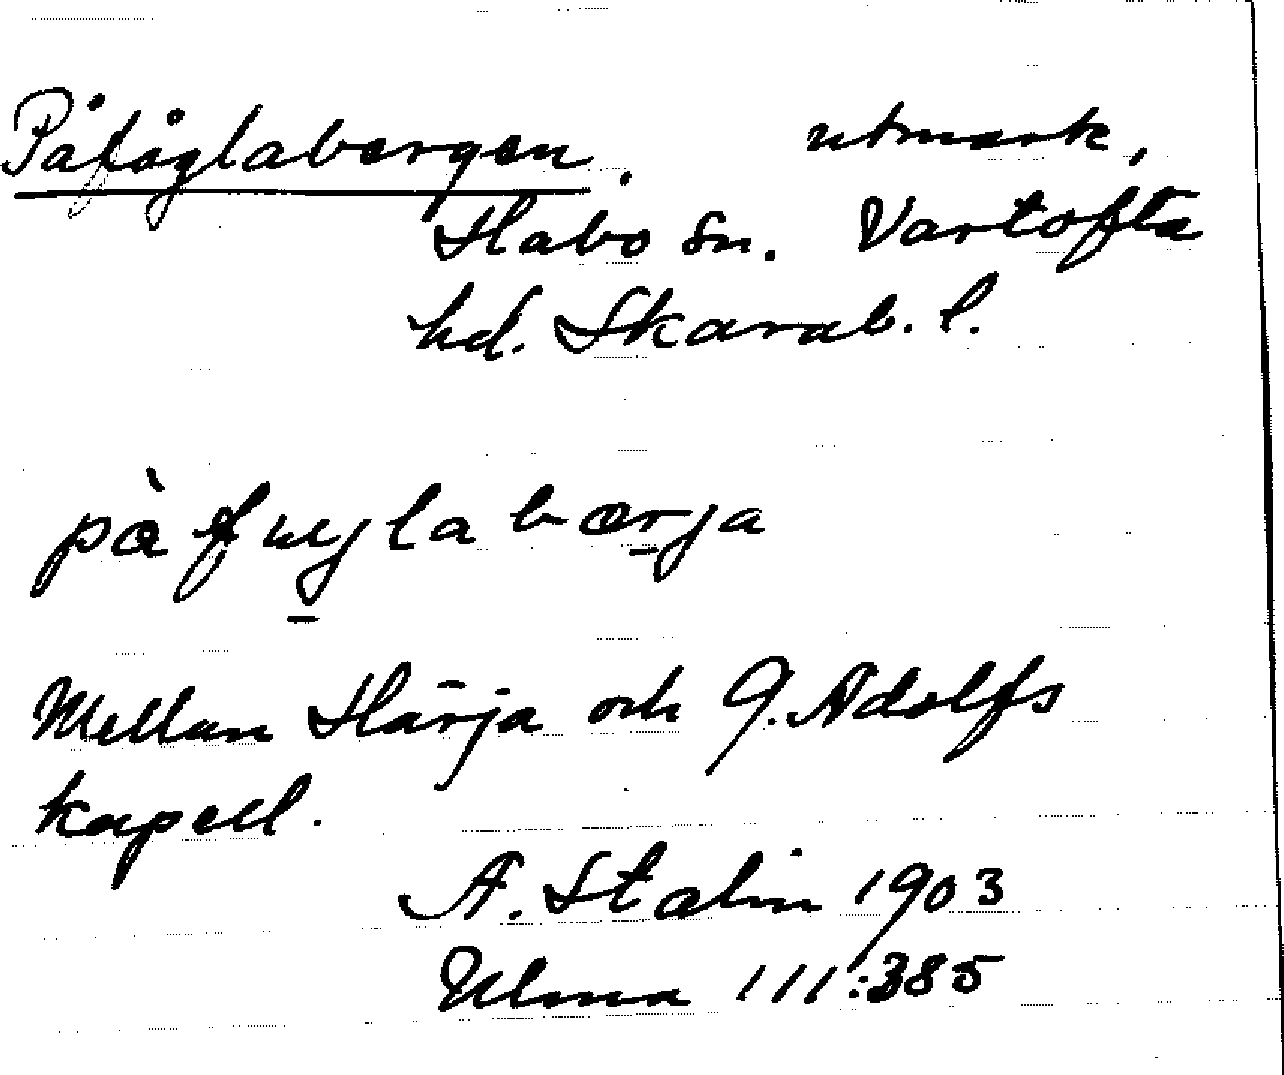 Påfåglabergen. utmark,
Habo sn. Vartofta
hd. Skarab. l.
på̀fuglabærja
Mellan Härja och G. Adolfs
kapell.
A. Stalin 1903
Ulma 111:385